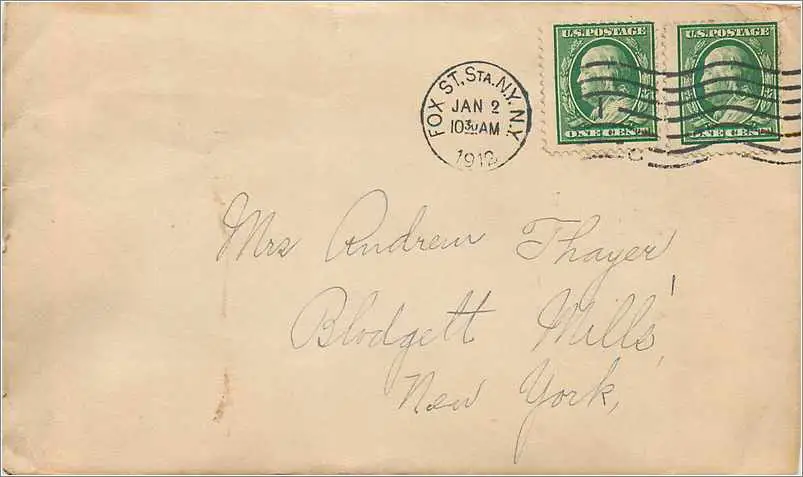 U.S. POSTAGE U.S. POSTAGE
ONE CENT ONE CENT
FOX ST. STA. N.Y. N.Y.
JAN 2
10 30 AM
1912
Mrs Andrew Thayer
Blodgett Mills,
New York,